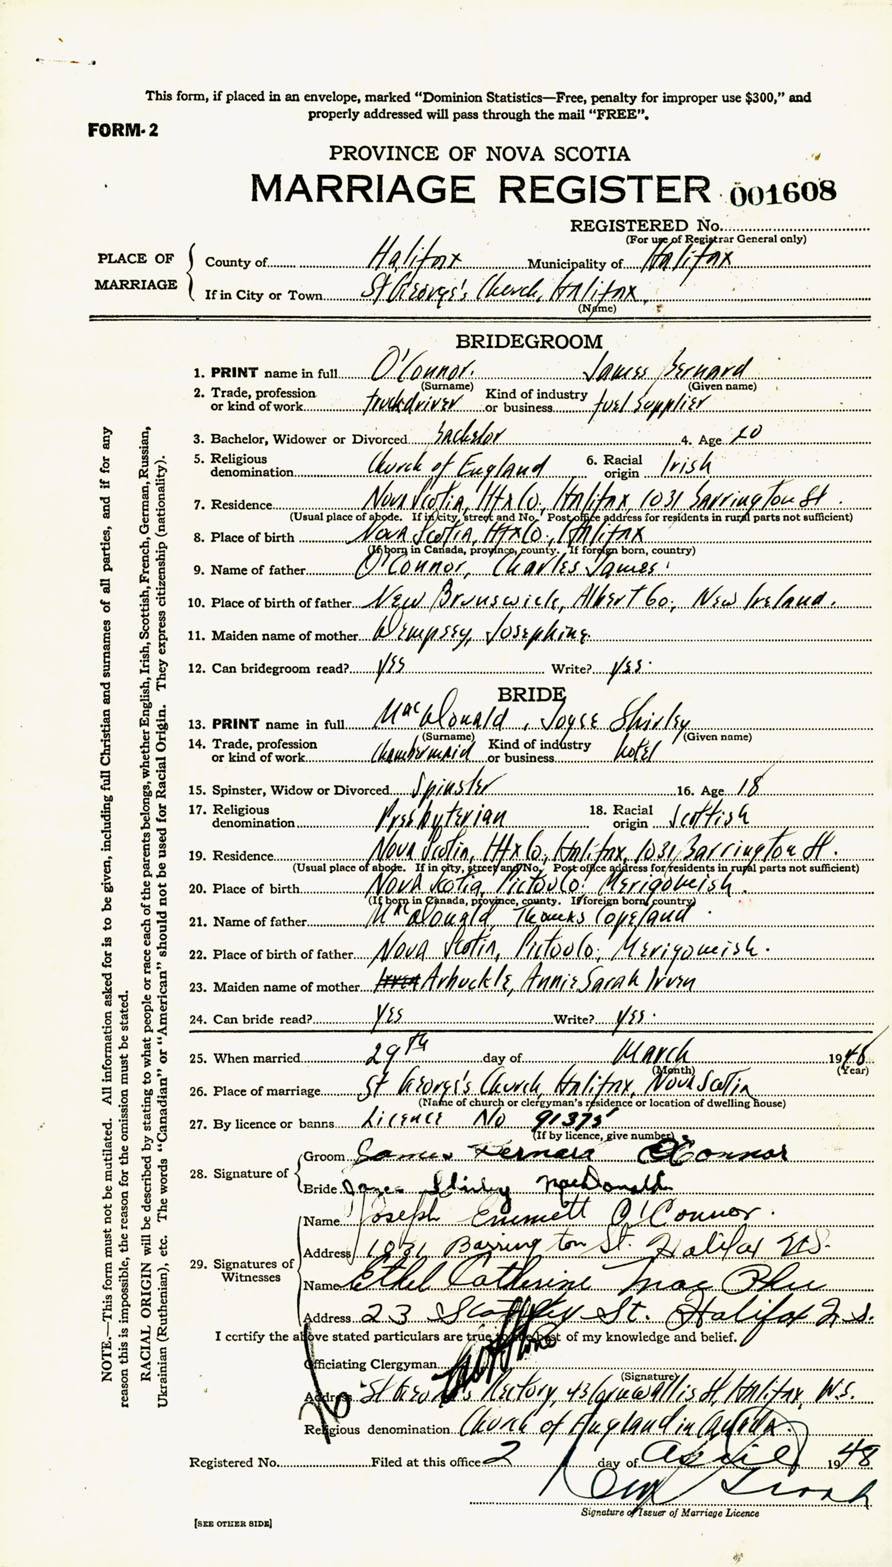 This form, if placed in an envelope, marked “Dominion Statistics—Free, penalty for improper use $300,” and
properly addressed will pass through the mail “FREE”.
FORM-2
PROVINCE OF NOVA SCOTIA
MARRIAGE REGISTER 001608
REGISTERED No.
(For use of Registrar General only)
PLACE OF MARRIAGE
County of Halifax Municipality of Halifax
If in City or Town St George's Church, Halifax,
(Name)
BRIDEGROOM
1. PRINT name in full O'Connor. James Bernard
(Surname) (Given name)
2. Trade, profession or kind of work truckdriver Kind of industry or business fuel supplier
3. Bachelor, Widower or Divorced Bachelor 4. Age 20
5. Religious denomination Church of England 6. Racial origin Irish
7. Residence Nova Scotia, Hfx Co, Halifax, 1031 Barrington St.
(Usual place of abode. If in city, street and No. Post office address for residents in rural parts not sufficient)
8. Place of birth Nova Scotia, Hfx Co., Halifax
(If born in Canada, province, county. If foreign born, country)
9. Name of father O'Connor, Charles James.
10. Place of birth of father New Brunswick, Albert Co, New Ireland.
11. Maiden name of mother Dempsey, Josephine.
12. Can bridegroom read? yes Write? yes.
BRIDE
13. PRINT name in full MacDonald, Joyce Shirley
(Surname) (Given name)
14. Trade, profession or kind of work Chambermaid Kind of industry or business hotel
15. Spinster, Widow or Divorced Spinster 16. Age 18
17. Religious denomination Presbyterian 18. Racial origin Scottish
19. Residence Nova Scotia, Hfx Co, Halifax, 1031 Barrington St.
(Usual place of abode. If in city, street and No. Post office address for residents in rural parts not sufficient)
20. Place of birth Nova Scotia, Pictou Co. Merigomish.
(If born in Canada, province, county. If foreign born, country)
21. Name of father MacDonald, Thomas Copeland.
22. Place of birth of father Nova Scotia, Pictou Co, Merigomish.
23. Maiden name of mother Arbuckle, Annie Sarah Irven
24. Can bride read? yes Write? yes.
25. When married 29th day of March 1948
(Month) (Year)
26. Place of marriage St George's Church, Halifax, Nova Scotia
(Name of church or clergyman's residence or location of dwelling house)
27. By licence or banns Licence No 91375
(If by licence, give number)
28. Signature of
Groom James Bernard O'Connor
Bride Joyce Shirley MacDonald
29. Signatures of Witnesses
Name Joseph Emmett O'Connor.
Address 1031 Barrington St. Halifax N.S.
Name Ethel Catherine Mac
Address 23 St. Halifax N.S.
I certify the above stated particulars are true to the best of my knowledge and belief.
Officiating Clergyman
(Signature)
Address St George's Rectory, 43 Cornwallis St, Halifax, N.S.
Religious denomination Church of England in Canada.
Registered No. Filed at this office 2 day of April 1948
Signature of Issuer of Marriage Licence
[SEE OTHER SIDE]
NOTE.—This form must not be mutilated. All information asked for is to be given, including full Christian and surnames of all parties, and if for any
reason this is impossible, the reason for the omission must be stated.
RACIAL ORIGIN will be described by stating to what people or race each of the parents belongs, whether English, Irish, Scottish, French, German, Russian,
Ukrainian (Ruthenian), etc. The words “Canadian” or “American” should not be used for Racial Origin. They express citizenship (nationality).